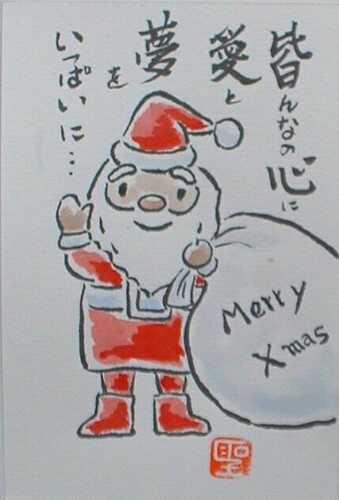 皆んなの心に
愛と
夢を
いっぱいに…
Merry
Xmas
聖